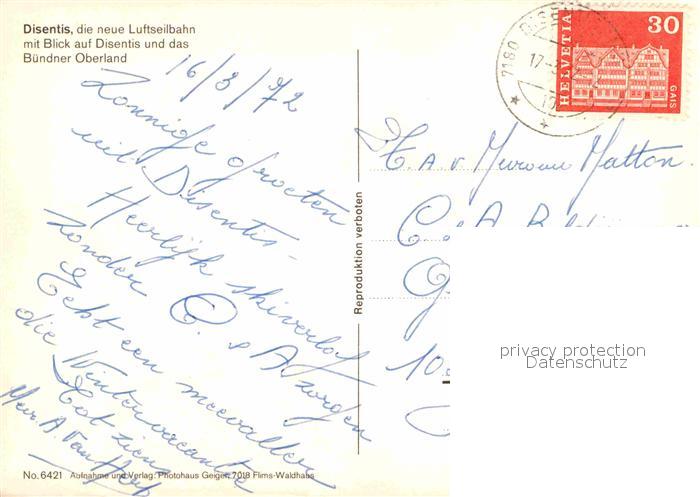 Disentis, die neue Luftseilbahn
mit Blick auf Disentis und das
Bündner Oberland
16/3/72
Zonnige groeten
uit Disentis -
Heerlijk skiverlof
zonder C. & A zorgen
Echt een meevaller
die Wintervacantie
Tot ziens
Mevr. A. Van
No. 6421 Aufnahme und Verlag: Photohaus Geiger, 7018 Flims-Waldhaus
Reproduktion verboten
7180 DISENTIS
17-3
HELVETIA
30
GAIS
A v Matton
C & A
10
privacy protection
Datenschutz